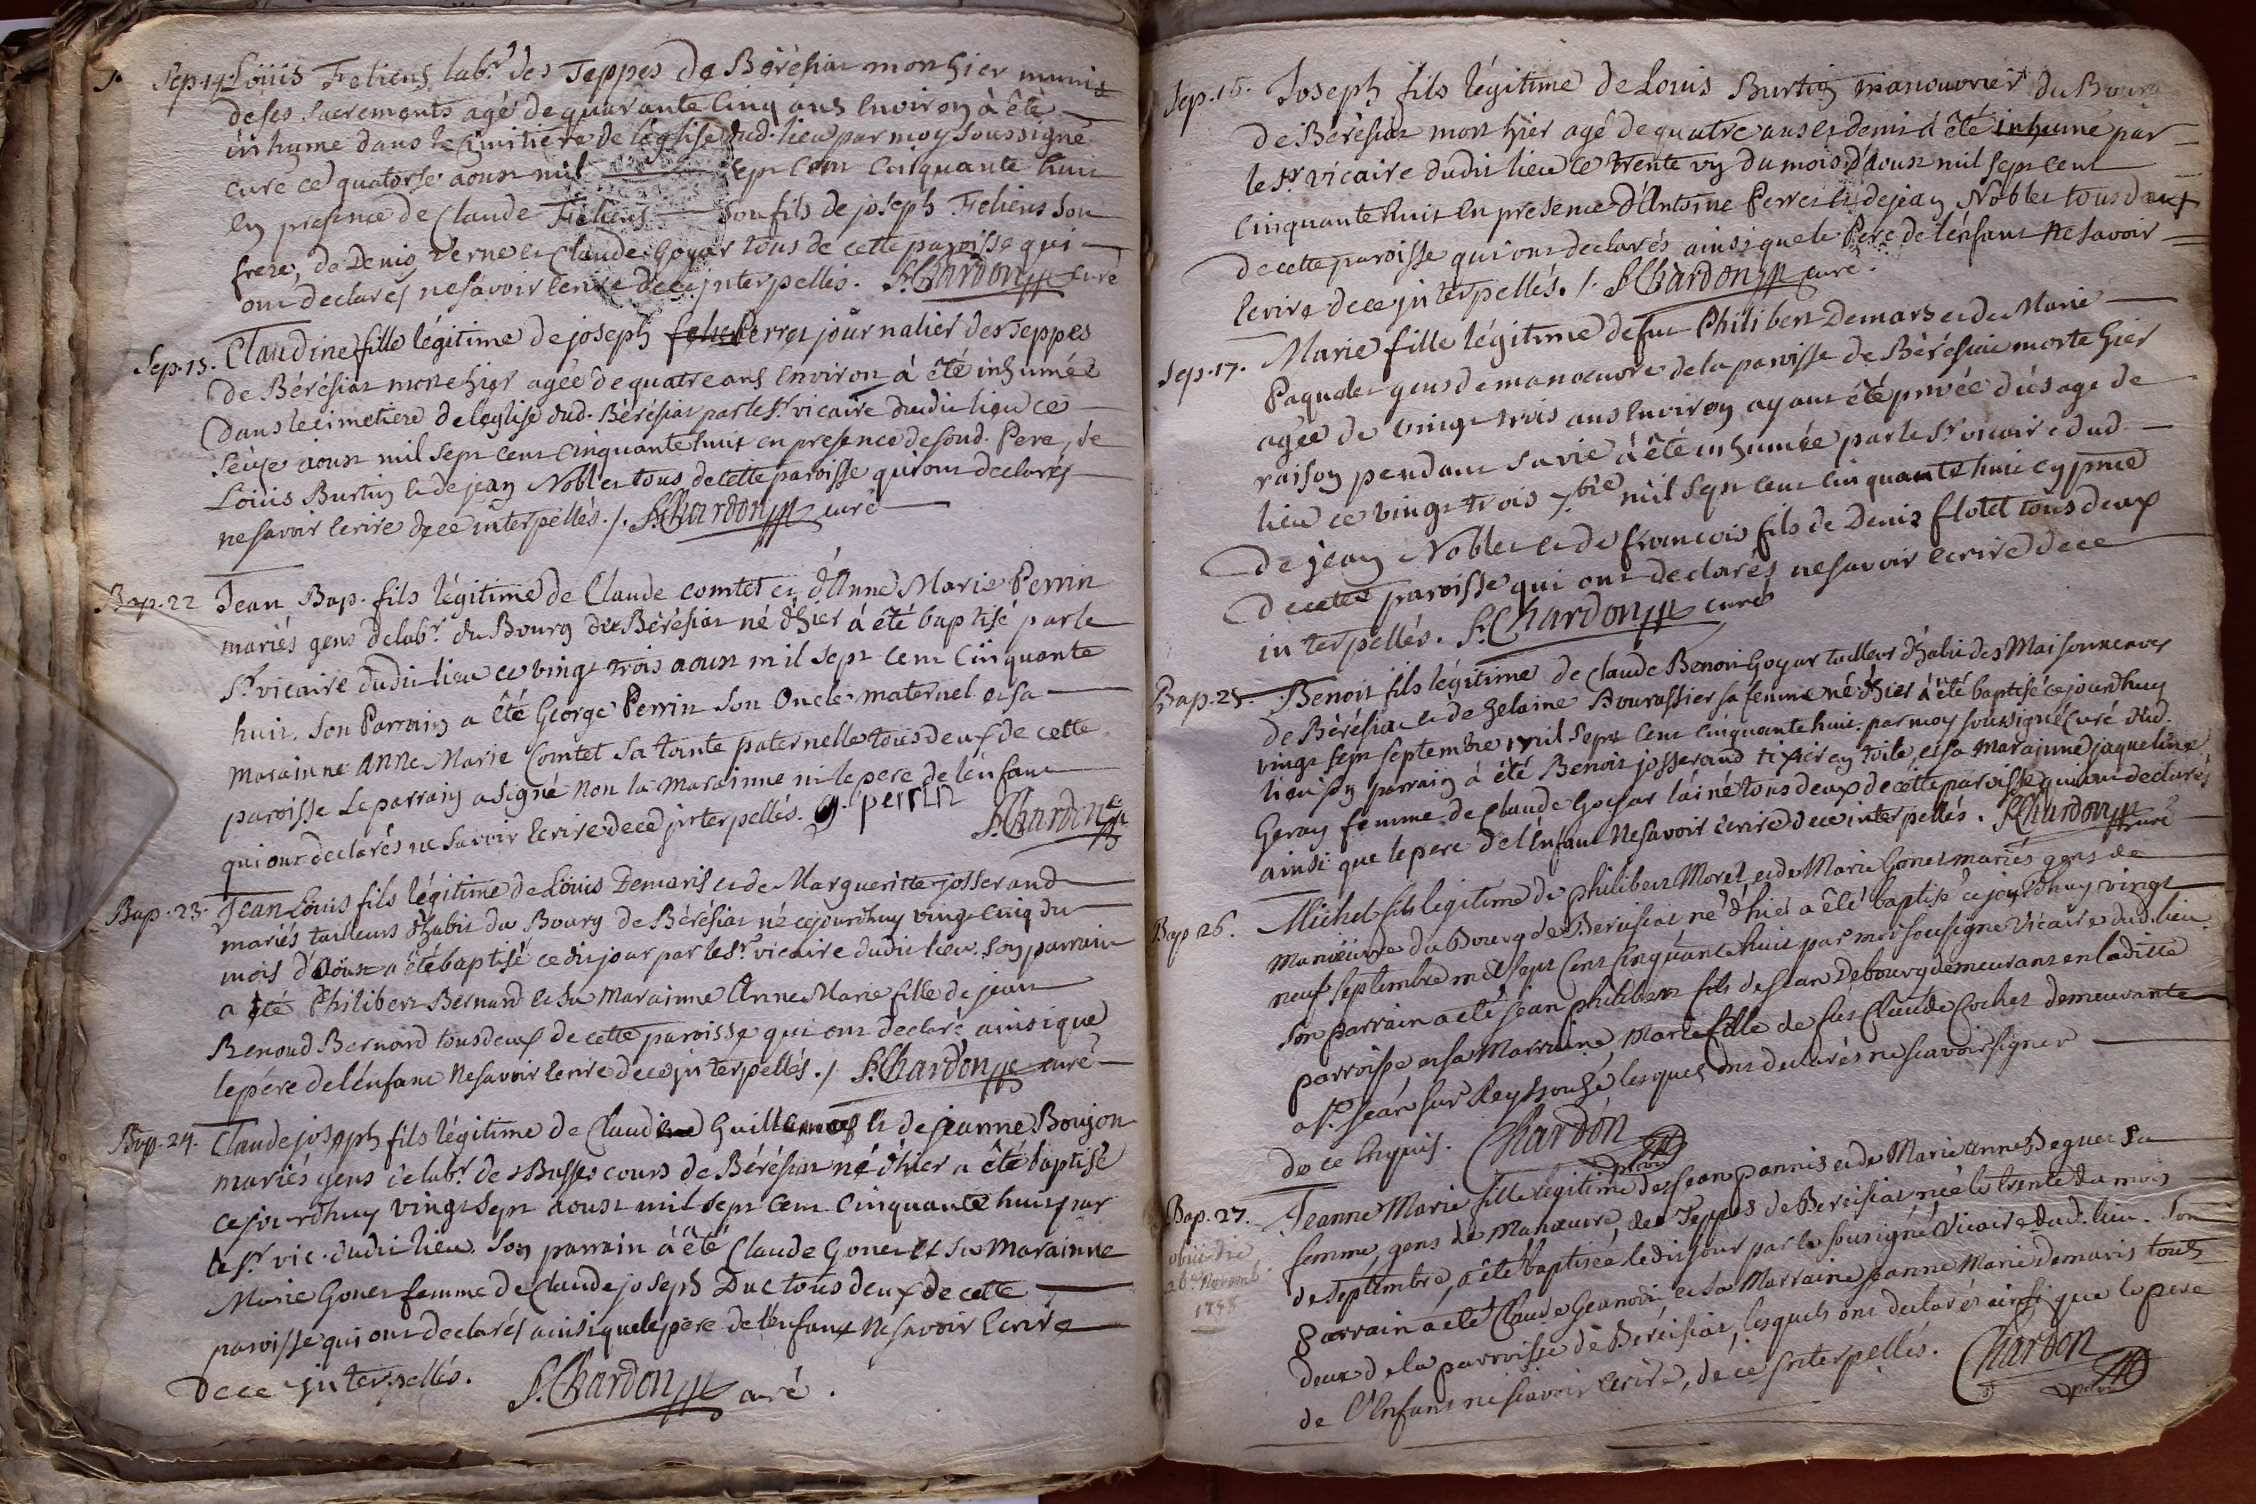 Sep. 14. Loüis Feliens lab.r des Teppes de Bérésiat mort hier munis
de ses sacrements agé de quarante cinq ans environ à êtè
inhumé dans le cimitiere de l'église dud. lieu par moy soussigné
curé ce quatorse aoust mil sept cent cinquante huit
en presence de Claude Feliens son fils de joseph Feliens son
frere, de Denis Verne et Claude Goyar tous de cette paroisse qui
ont declarés ne savoir ecrire de ce interpellés. S. Chardon curé
Sep. 15. Claudine fille légitime de joseph Perret journalier des Teppes
de Bérésiat morte hier agée de quatre ans environ à été inhumée
dans le cimetiere de l'eglise dud. Bérésiat par le Sr vicaire dudit lieu ce
seize aoust mil sept cent cinquante huit en presence de soud. Pere, de
Loüis Burtin et de jean Noblet tous de cette paroisse qui ont declarés
ne savoir ecrire de ce interpellés. /. S. Chardon curé
Bap. 22 Jean Bap. fils légitime de Claude comtet et d'Anne Marie Perrin
mariés gens de lab.r du Bourg de Bérésiat né d'hier á été baptisé par le
Sr. vicaire dudit lieu ce vingt trois aoust mil sept cent cinquante
huit. son Parrain a êté George Perrin son Oncle maternel et sa
marainne Anne Marie Comtet sa tante paternelle tous deux de cette
paroisse Le parrain a signé non la marainne ni le pere de l'énfant
qui ont declarés ne savoir ecrire de ce interpellés. g. perrin S. Chardon cé
Bap. 23. Jean Loüis fils légitime de Loüis Demaris et de Margueritte josserand
mariés tailleurs d'habit du Bourg de Bérésiat né cejourdhuy vingt cinq du
mois d'Aoust a été baptisé ce dit jour par le Sr. vicaire dudit lieu. son parrain
a été Philibert Bernard et sa Marainne Anne Marie fille de jean
Renoud Bernard tous deux de cette paroisse qui ont declaré ainsi que
le pére de l'énfant ne savoir ecrire de ce interpellés. / S. Chardon curé
Bap. 24. Claude joseph fils légitime de Claud Guillemot et de jeanne Boujon
mariés gens de lab.r des Basses cours de Bérésiat né d'hier a êté baptisé
cejourdhuy vingt sept aoust mil sept cent cinquante huit par
le Sr. vic. dudit lieu. son parrain á êté Claude Gonet et sa Marainne
Marie Gonet femme de Claude joseph Duc tous deux de cette
paroisse qui ont declarés ainsi que le pere de l'énfant ne savoir ecrire
de ce interpellés. S. Chardon curé.
Sep. 16. Joseph fils légitime de Louis Burtin manouvrier du Bourg
de Bérésiat mort hier agé de quatre ans et demi à été inhumé par
le Sr. vicaire dudit lieu ce trente un du mois d'aoust mil sept cent
cinquante huit en presence d'Antoine Perret et de jean Noblet tous deux
de cette paroisse qui ont declarés ainsi que le Pere de l'énfant ne savoir
ecrire de ce interpellés. /. S. Chardon curé.
Sep. 17. Marie fille légitime de fut Philibert Demars et de Marie
Paquelet gens de manœuvre de la paroisse de Bérésiat morte hier
agée de vingt trois ans environ ayant été privée d'usage de
raison pendant sa vie à êté inhumée par le Sr vicaire dud.
lieu ce vingt trois 7.bre mil sept cent cinquante huit en pnce
de jean Noblet et de francois fils de Denis flotet tous deux
de cette paroisse qui ont declarés ne savoir ecrire de ce
interpellés. S. Chardon curé
Bap. 25. Benoit fils légitime de Claude Benoit Goyar tailleur d'habit des Maisonneaves
de Bérésiat et de helaine Bourassier sa femme né d'hier à été baptisé cejourdhuy
vingt sept septembre mil sept cent cinquante huit. par moy soussigné curé dud.
lieu son parrain à été Benoit josserand tixier en toile, et sa marainne jaqueline
Geray femme de Claude Goyar l'ainé tous deux de cette paroisse qui ont declarés
ainsi que le pere de l'énfant ne savoir ecrire de ce interpellés. S. Chardon curé
Bap. 26. Michel fils legitime de philibert Morel et de Marie Gonet mariés gens de
Manœuvre du Bourg de Béreisiat, né d'hier a êté baptisé ce jourd'huy vingt
neuf septembre mil sept cent cinquante huit par moi sousigné Vicaire dud. lieu
son parrain a eté jean philibert fils de jean Debourg demeurant en laditte
parroisse et sa Marraine, Marie fille de fut Claude Cochet demeurante
a St. jean sur Reyssouze, lesquels ont declarés ne scavoir signer
de ce enquis. Chardon
Bap. 27. Jeanne Marie fille legitime de jean pannis et de Marie Anne Deguer sa
femme, gens de Manœuvre, des Teppes de Béreisiat née le trente du mois
de septembre, a êté baptisée ledit jour par le sousigné Vicaire dud. lieu. Son
parrain a eté Claude Geanodi, et sa Marraine jeanne Marie demaris tous
deux de la parroisse de Béreisiat, lesquels ont declarés ainsi que le pere
de l'Enfant ne scavoir ecrire, de ce interpellés. Chardon
obiit die
26 Novemb.
1758